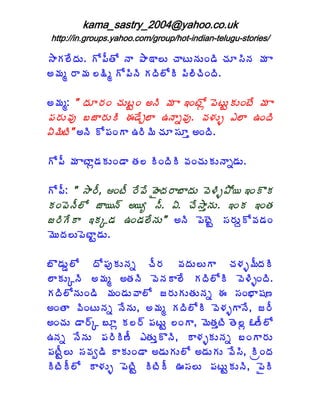 kama_sastry_2004@yahoo.co.uk
http://in.groups.yahoo.com/group/hot-indian-telugu-stories/
సాగలేదు. గోపీతో నా పాఠాలు చాటునుండి చూసిన మా
అమ్మ రామ లక్ష్మి గోపిని గదిలోకి పిలిచింది.
అమ్మ: " దూరం చుట్టం అని మా ఇంట్లో పెట్టుకుంటే మా
పరువు బజారుకి ఈడ్చేలా ఉన్నావు. వళ్ళు ఎలా ఉంది
ఏమిటి" అని కోపంగా ఉరిమి చూస్తూ అంది.
గోపీ మాట్లాడకుండా తల కిందికి వంచుకున్నాడు.
గోపీ: " సారీ, ఆంటీ రేపే హైదరాబాదు వెళ్ళిపోయి ఇంకొక
కంపెనీలో జాయిన్ అయ్యి సీ. ఏ. చేస్తాను. ఇంక ఇంత
జరిగేకా ఇక్కడ ఉండలేను" అని పెట్టె సర్దుకోవడం
మొదలుపెట్టాడు.
బొడ్డులో దోపుకున్న చీర వదులుగా చళ్ళమీదకి
లాక్కుని అమ్మ అతని వెనకాలే గదిలోకి వెళ్ళింది.
గదిలోనుండి మండువాలో జరుగుతున్న ఈ సంభాషణ
అంతా వింటున్న నేను, అమ్మ గదిలోకి వెళ్ళగానే, జరీ
అంచు డార్క్ బ్లూ కలర్ పట్టు లంగా, మెత్తటి తెల్ల ఓణీలో
ఉన్న నేను పరికిణీ ఎత్తుకొని, కాళ్ళకున్న బంగారు
పట్టీలు సవ్వడి కాకుండా అడుగులో అడుగు వేసి, క్రింద
కిటికీలో కాళ్ళు పెట్టి కిటికీ ఊసలు పట్టుకుని, పైకి